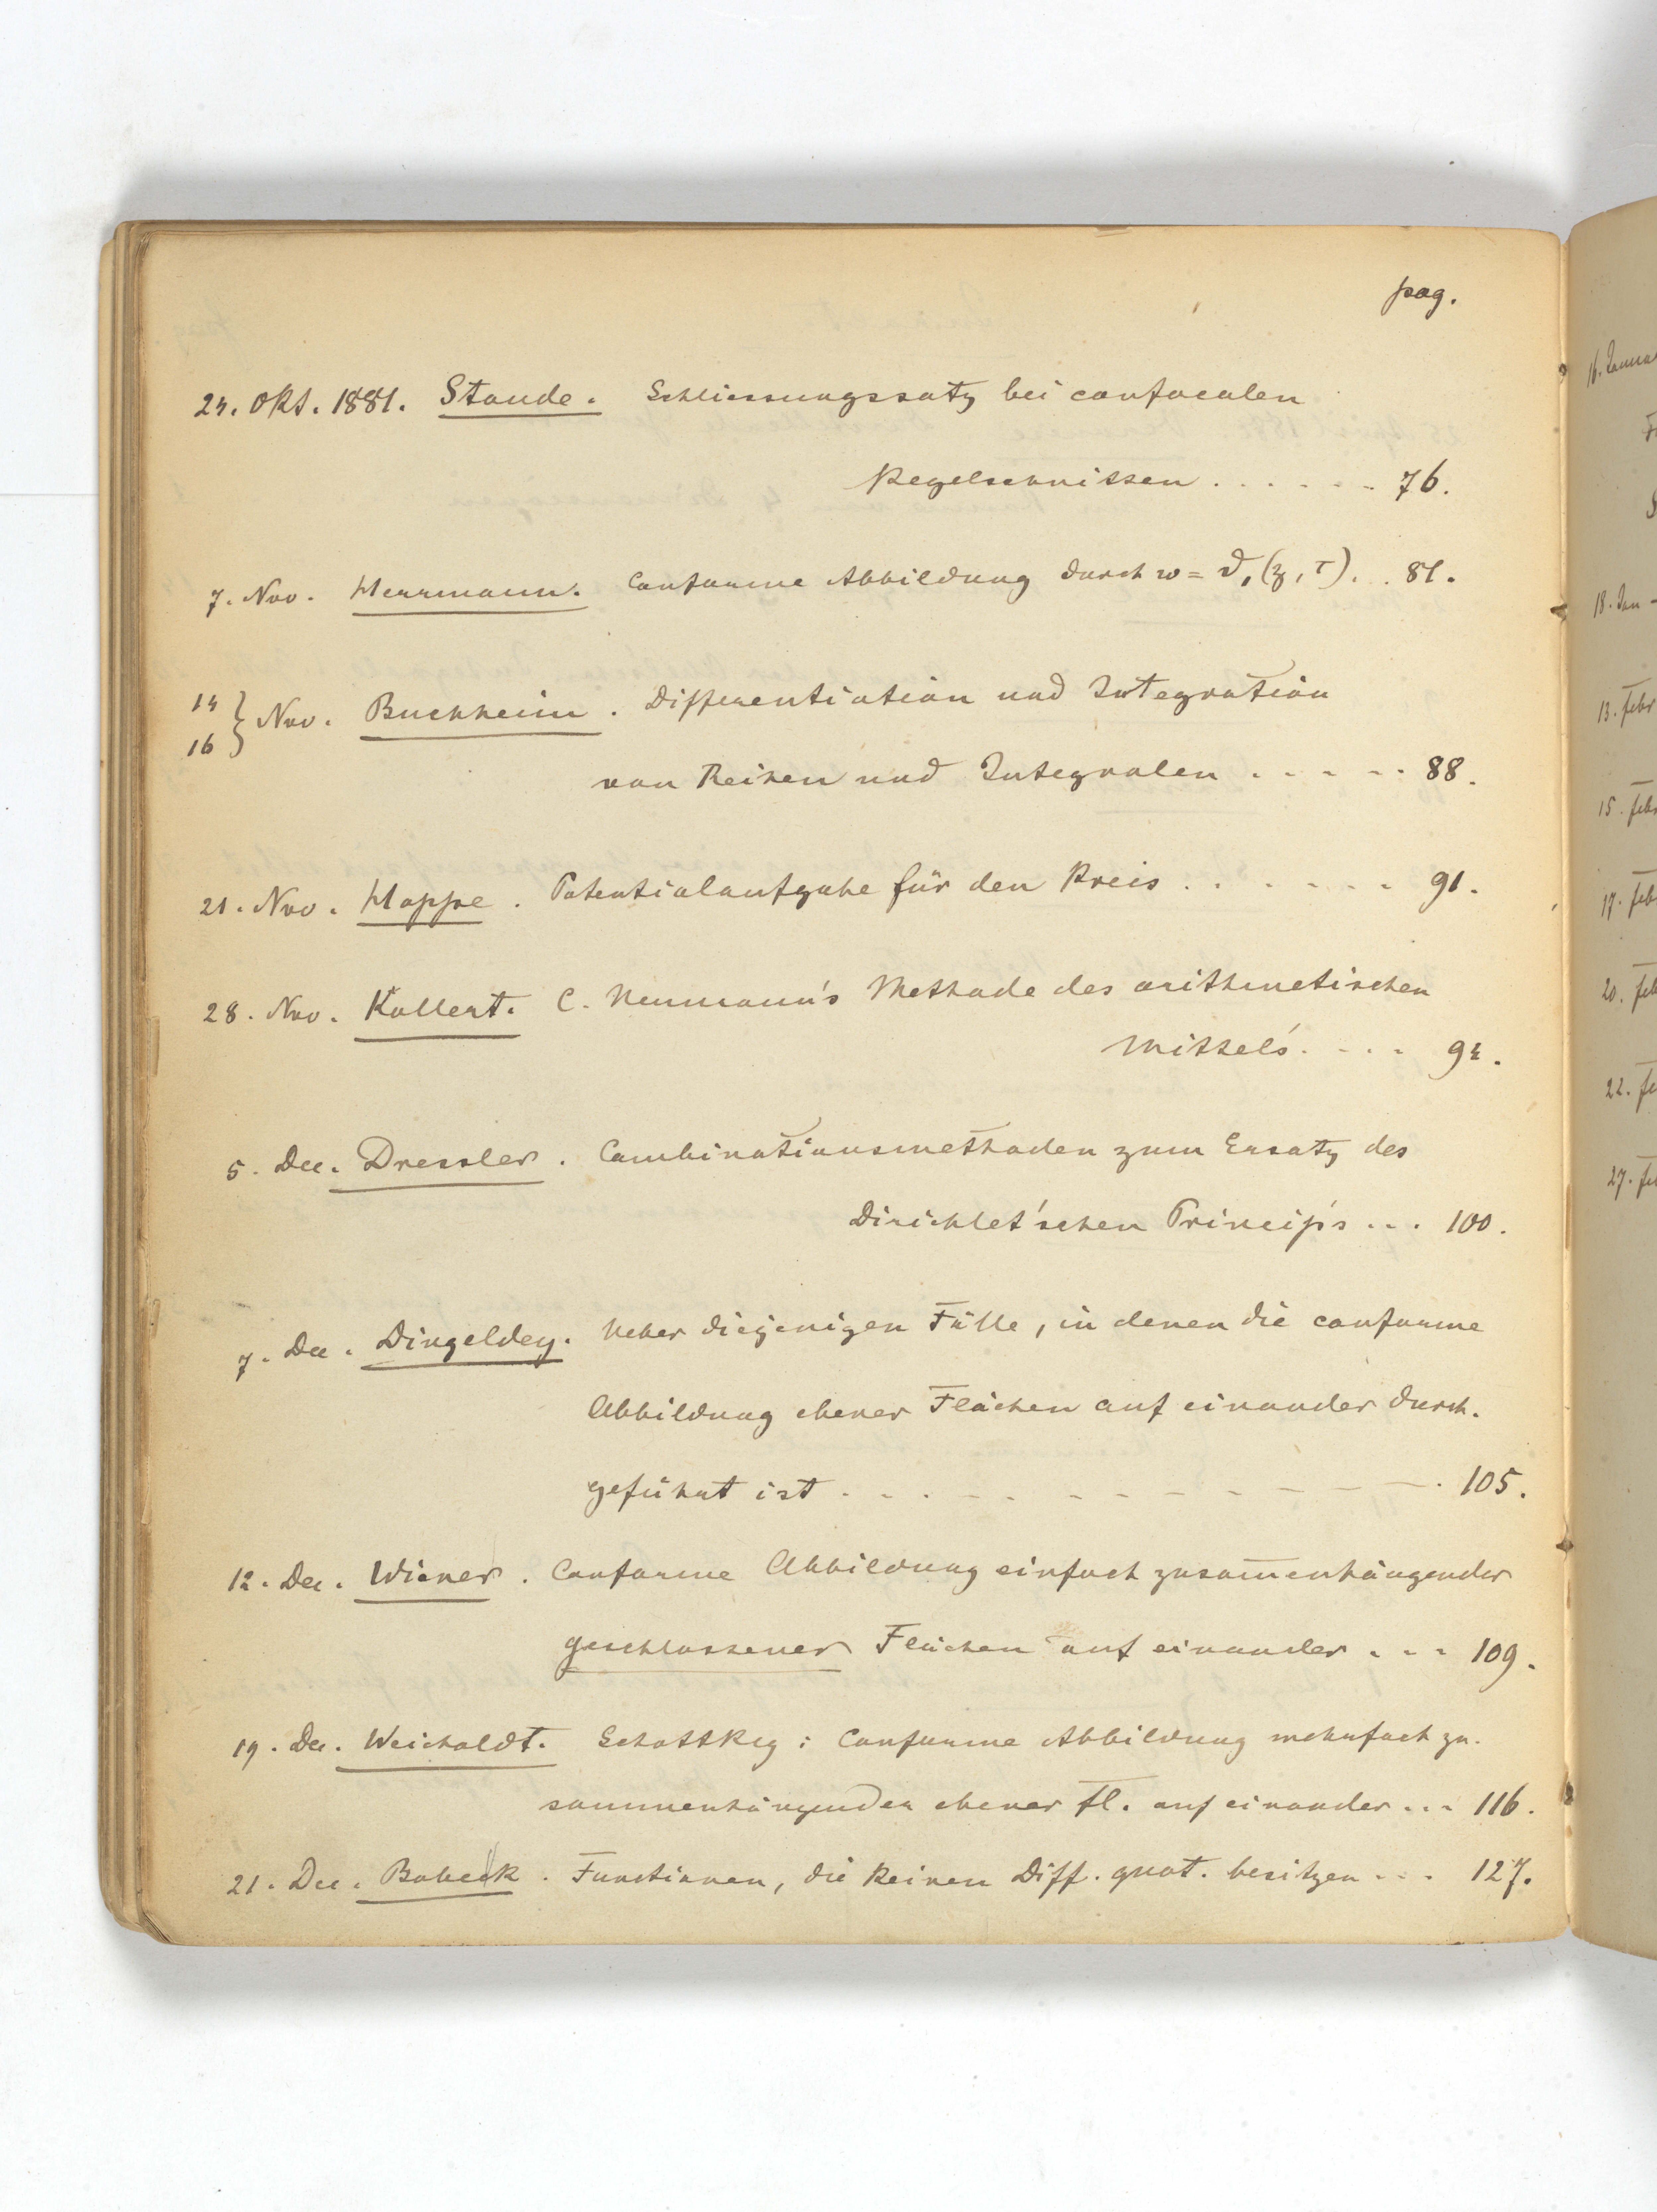 pag.
24. Okt. 1881. Staude. Schliessungssatz bei confocalen
Kegelschnitten . . . . . . 76.
7. Nov. Herrmann. Conforme Abbildung durch w = ϑ₁(z, τ). . . 81.
14
16 } Nov. Buchheim. Differentiation und Integration
von Reihen und Integralen . . . . . 88.
21. Nov. Hoppe. Potentialaufgabe für den Kreis . . . . . . . 91.
28. Nov. Kollert. C. Neumann's Methode des arithmetischen
Mittels. . . . 94.
5. Dec. Dressler. Combinationsmethoden zum Ersatz des
Dirichlet'schen Princip's . . . 100.
7. Dec. Dingeldey. Ueber diejenigen Fälle, in denen die conforme
Abbildung ebener Flächen auf einander durch-
geführt ist . . . . . . . . . . . . . 105.
12. Dec. Wiener. Conforme Abbildung einfach zusam̅enhängender
geschlossener Flächen auf einander . . . 109.
19. Dec. Weicholdt. Schottky: Conforme Abbildung mehrfach zu-
sammenhängender ebener Fl. auf einander . . . 116.
21. Dec. Bobek. Functionen, die keinen Diff. quot. besitzen . . . 127.
16. Janua
18. Jan -
13. Febr
15. Febr
17. Feb
20. Feb
22. Fe
27. Fe